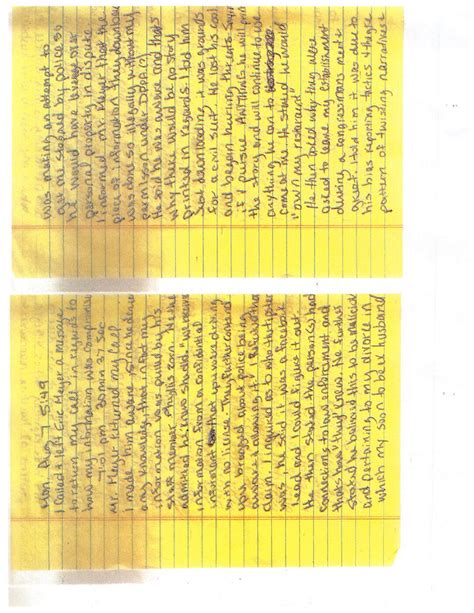 Mon, Aug 7 5:49
I called & left Eric Meyer a message
to return my call in regard to
how my information was compromised
7:01 pm 30 min 37 sec
Mr. Meyer returned my call.
I made him aware since he denied
any knowledge, that in fact my
information was pulled by his
staff member Phyllis Zorn. He then
admitted he
information from a confidential
informant that you were driving
with no license. They further contend
you bragged about police being
aware & allowing it. I refused that
claim. I inquired as to who the tipster
was, he said it was a facebook
lead and I could figure it out.
He then stated the person(s) had
connections to law enforcement and
thats how they knew. He further
stated he believed this to be malicious
and pertaining to my divorce in
which my soon to be ex husband
was making an attempt to
get me stopped by police so
he would have leverage over
personal property in dispute
I informed Mr. Meyer that the
piece of information they download
was done so illegally without my
permission under DPPA
He said he was aware and thats
why there would be no story
printed in regards. I told him
downloading it was grounds
for a civil suit. He lost his cool
and began hurling threats sayin
if I pursue ANYthing he will print
the story and will continue to use
anything he can to
come at me. He stated he would
"own my restaurant"
He then asked why they were
asked to leave my establishment
during a congressmans meet &
greet. I told him it was due to
his bias reporting tactics & their
pattern of twisting narratives